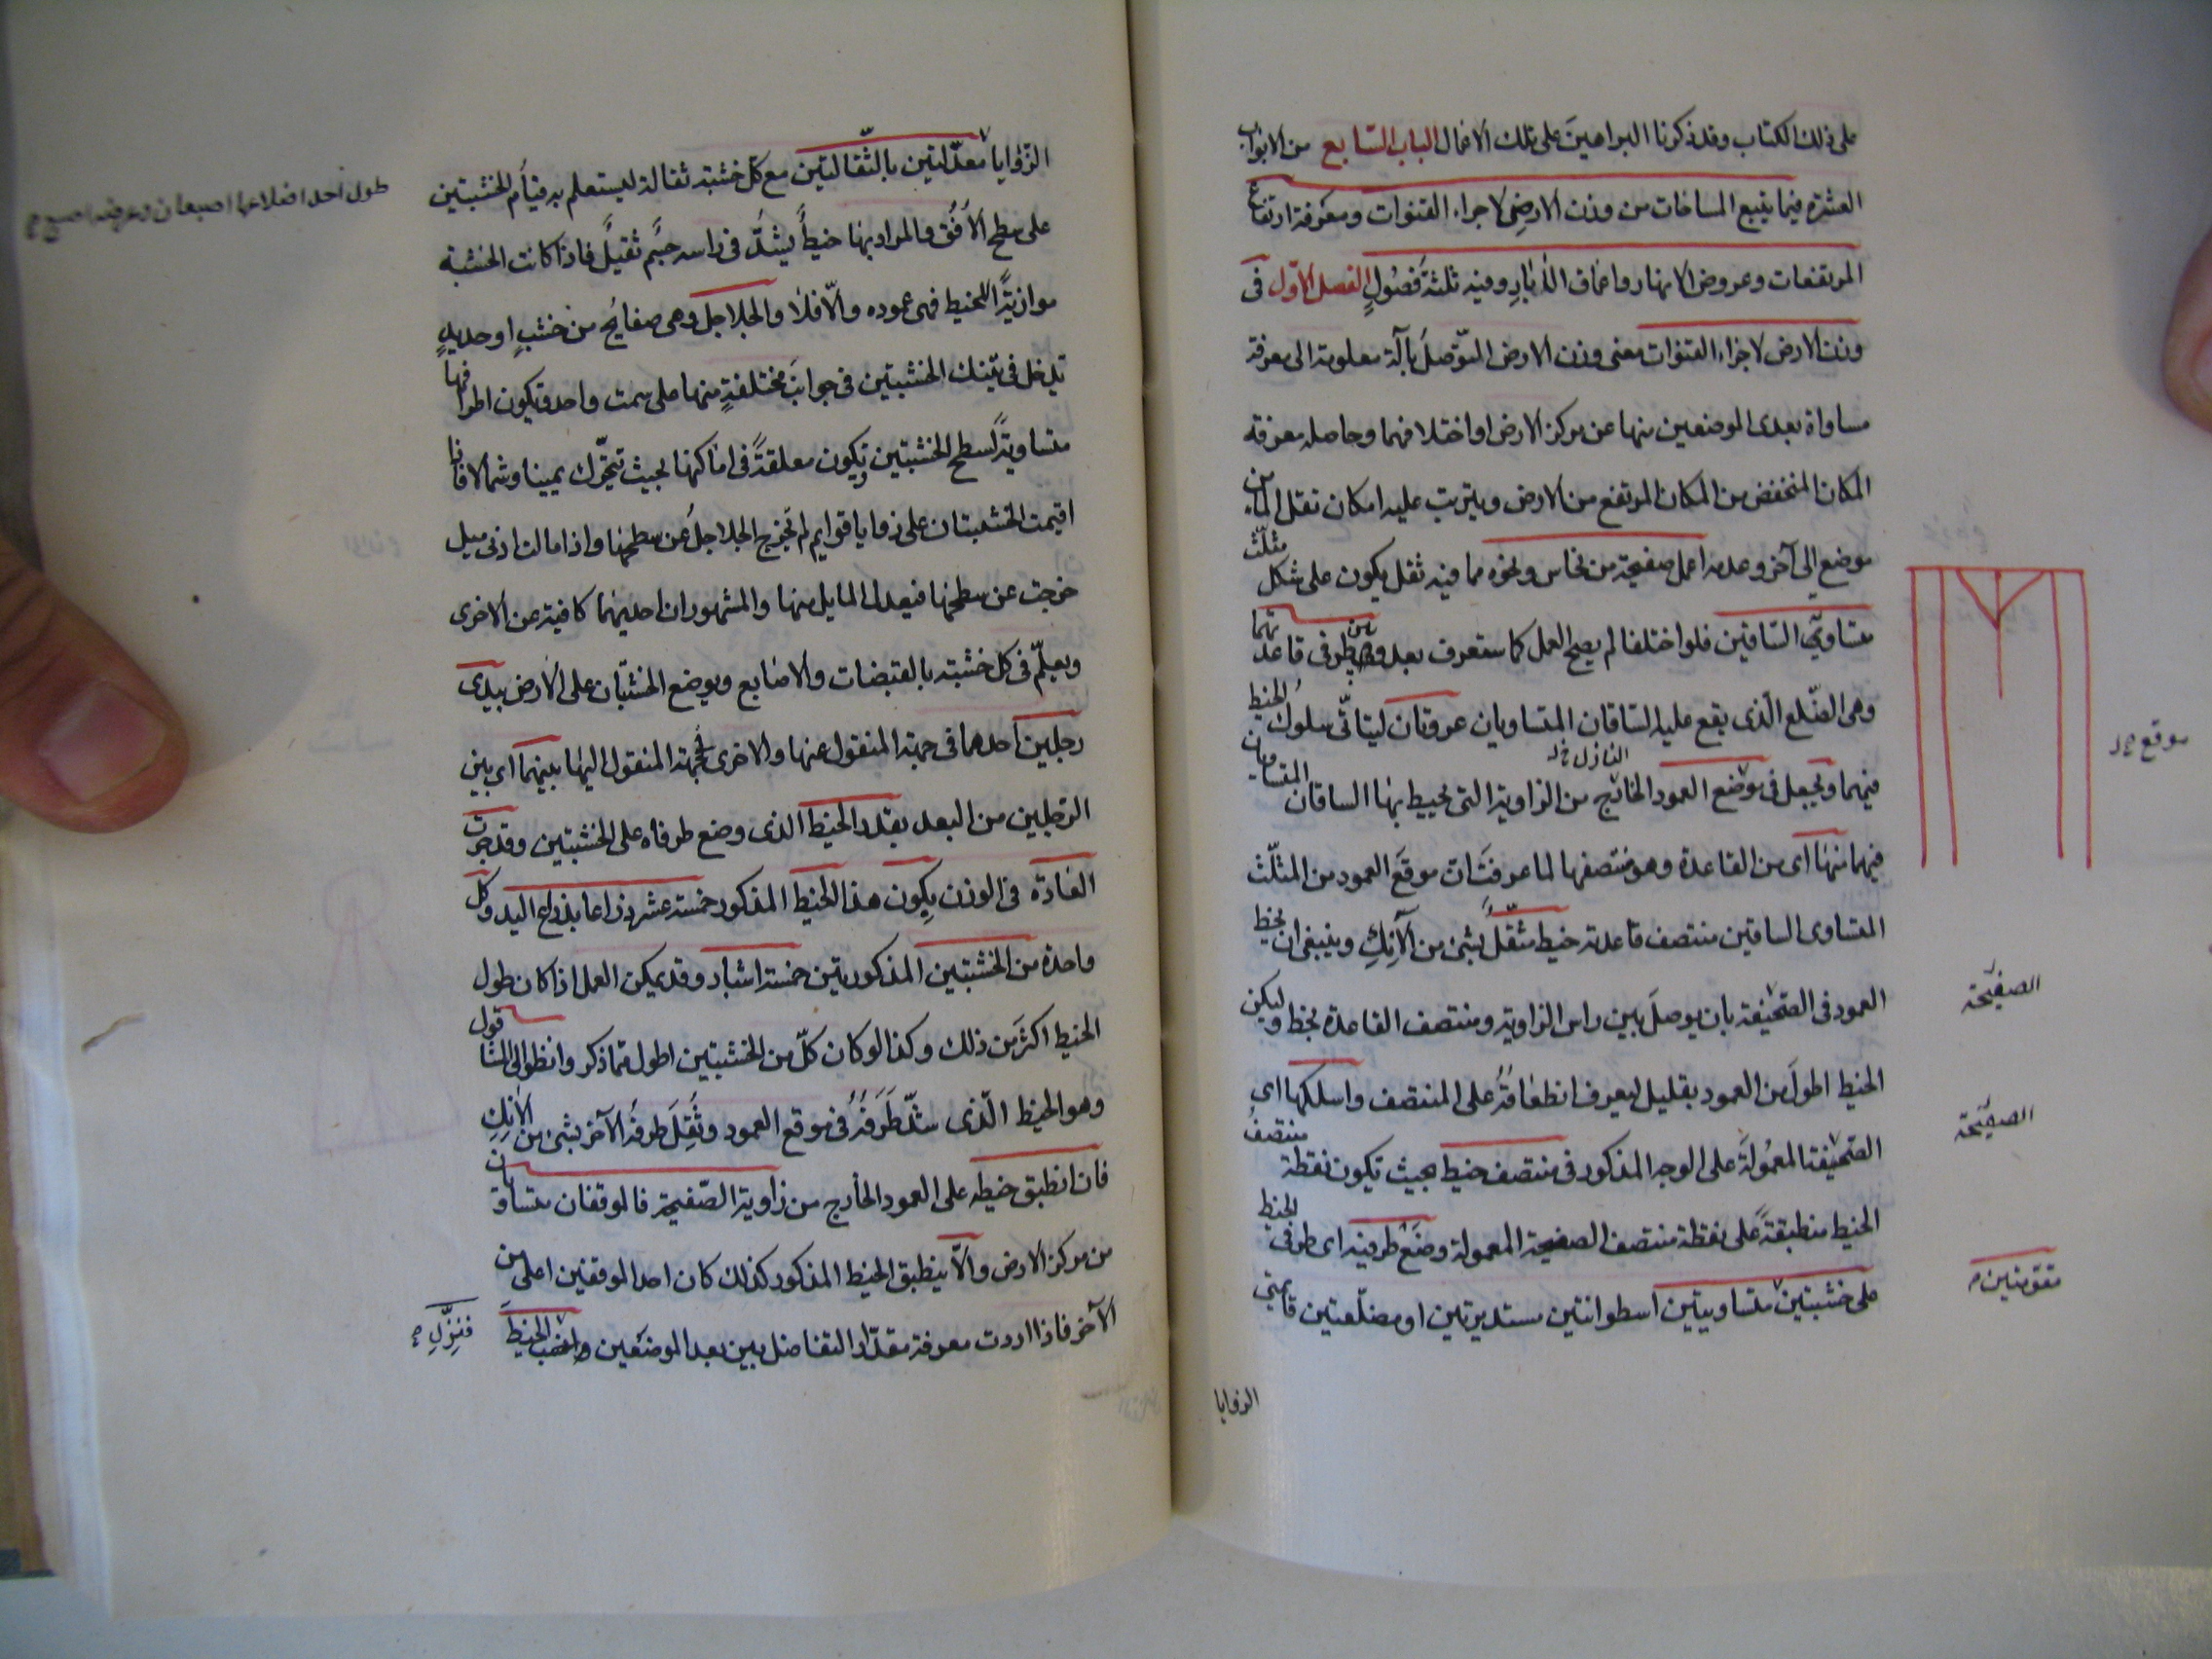 على ذلك الكتاب وقد ذكرنا البراهين على تلك الاعمال الباب السابع من الابواب
العشرة فيما يتبع المساحات من وزن الارض لاجراء القنوات ومعرفة ارتفاع
المرتفعات وعروض الانهار واعماق الآبار وفيه ثلثة فصول الفصل الاول فى
وزن الارض لاجراء القنوات معنى وزن الارض التوصل بآلة معلومة الى معرفة
مساواة بعدى الموضعين منها عن مركز الارض او اختلافهما وحاصله معرفة
المكان المنخفض من المكان المرتفع من الارض ويترتب عليه امكان نقل الماء من
موضع الى آخر وعدمه اعمل صفيحة من نحاس ونحوه مما فيه ثقل يكون على شكل مثلث
متساوى الساقين فلو اختلفا لم يصح العمل كما ستعرف بعد وبين طرفى قاعدتها
وهى الضلع الذى يقع عليه الساقان المتساويان عروتان ليتاتى سلوك الخيط
فيهما ويجعل فى موضع العمود الخارج من الزاوية التى يحيط بها الساقان المتساويان
النازل
فيهما منها اى من القاعدة وهو منتصفها لما عرفت ان موقع العمود من المثلث
المتساوى الساقين منتصف قاعدته خيط مثقل بشئ من الآنك وينبغى ان يخط
العمود فى الصحيفة بان يوصل بين راس الزاوية ومنتصف القاعدة بخط وليكن
الخيط اطول من العمود بقليل ليعرف انطباقه على المنتصف واسلكها اى
الصحيفة المعمولة على الوجه المذكور فى منتصف خيط بحيث تكون نقطة منتصف
الخيط منطبقة على نقطة منتصف الصفيحة المعمولة وضع طرفيه اى طرفى الخيط
على خشبتين متساويتين اسطوانتين مستديرتين او مضلعتين قائمتى
الزوايا
موقع
الصفيحة
الصفيحة
مقومتين
الزوايا معدلتين بالثقالتين مع كل خشبة ثقالة ليستعلم به قيام الخشبتين
على سطح الافق والمراد بها خيط يشد فى راسه جسم ثقيل فاذا كانت الخشبة
موازية للخيط فهى عموده والا فلا والجلاجل وهى صفايح من خشب او حديد
تدخل فى تينك الخشبتين فى جوانب مختلفة منهما على سمت واحد وتكون اطرافها
متساوية لسطح الخشبتين وتكون معلقة فى اماكنها بحيث تتحرك يمينا وشمالا فاذا
اقيمت الخشبتان على زوايا قوايم لم تخرج الجلاجل عن سطحها واذا مالت ادنى ميل
خرجت عن سطحها فيعدل المايل منها والمشهور ان احديهما كافية عن الاخرى
ويعلم فى كل خشبة بالقبضات والاصابع ويوضع الخشبتان على الارض بيدى
رجلين احدهما فى جهة المنقول عنها والاخرى فى جهة المنقول اليها بينهما اى بين
الرجلين من البعد بقدر الخيط الذى وضع طرفاه على الخشبتين وقد جرت
العادة فى الوزن بكون هذا الخيط المذكور خمسة عشر ذراعا بذراع اليد وكل
واحدة من الخشبتين المذكورتين خمسة اشبار وقد يمكن العمل اذا كان طول
الخيط اكثر من ذلك وكذا لو كان كل من الخشبتين اطول مما ذكر وانظر الى الشاقول
وهو الخيط الذى شد طرفه فى موقع العمود وثقل طرفه الآخر بشئ من الآنك
فان انطبق خيطه على العمود الخارج من زاوية الصفيحة فالموقفان متساويان
من مركز الارض والا ينطبق الخيط المذكور كذلك كان احد الموقفين اعلى من
الآخر فاذا اردت معرفة مقدار التفاضل بين بعد الموضعين الخيط
فنزل
طول احد اضلاعها اصبعان وعرضه اصبع